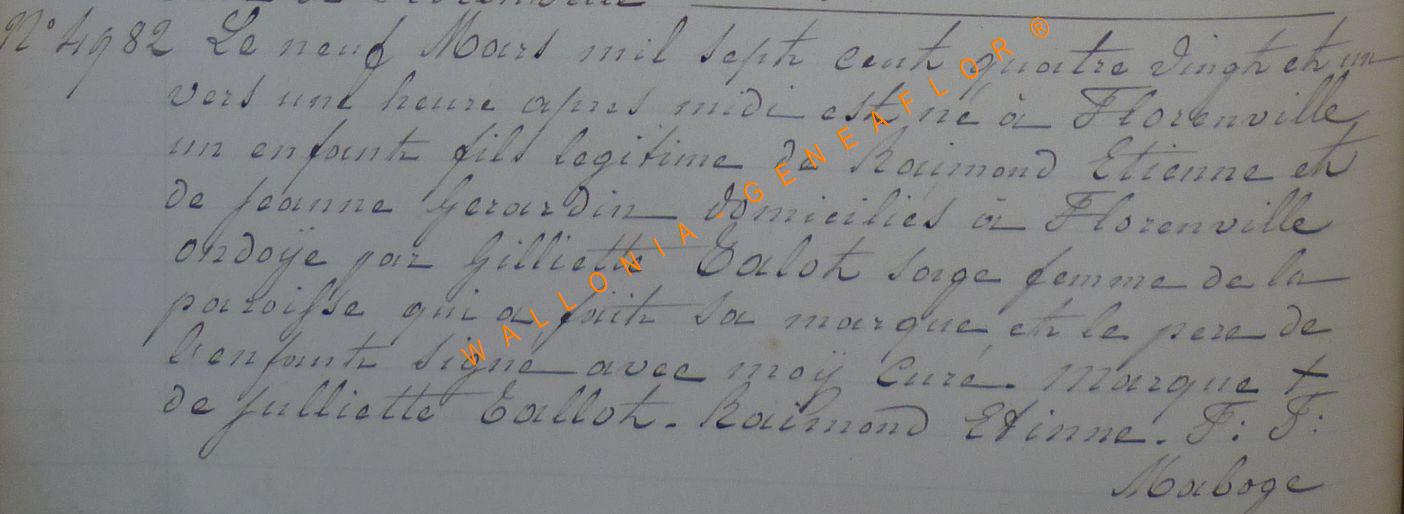 de Florenville
N° 4982 Le neuf Mars mil sept cent quatre vingt et un
vers une heure apres midi est né à Florenville
un enfant fils legitime de Raimond Etienne et
de Jeanne Gerardin domiciliés à Florenville
ondoÿe par Gilliette Talot sage femme de la
paroisse qui a fait sa marque et le pere de
l'enfant signé avec moÿ Curé. Marque +
de Julliette Tallot. Raimond Etinne. F: F:
Maboge
WALLONIA - GENEAFLOR ®